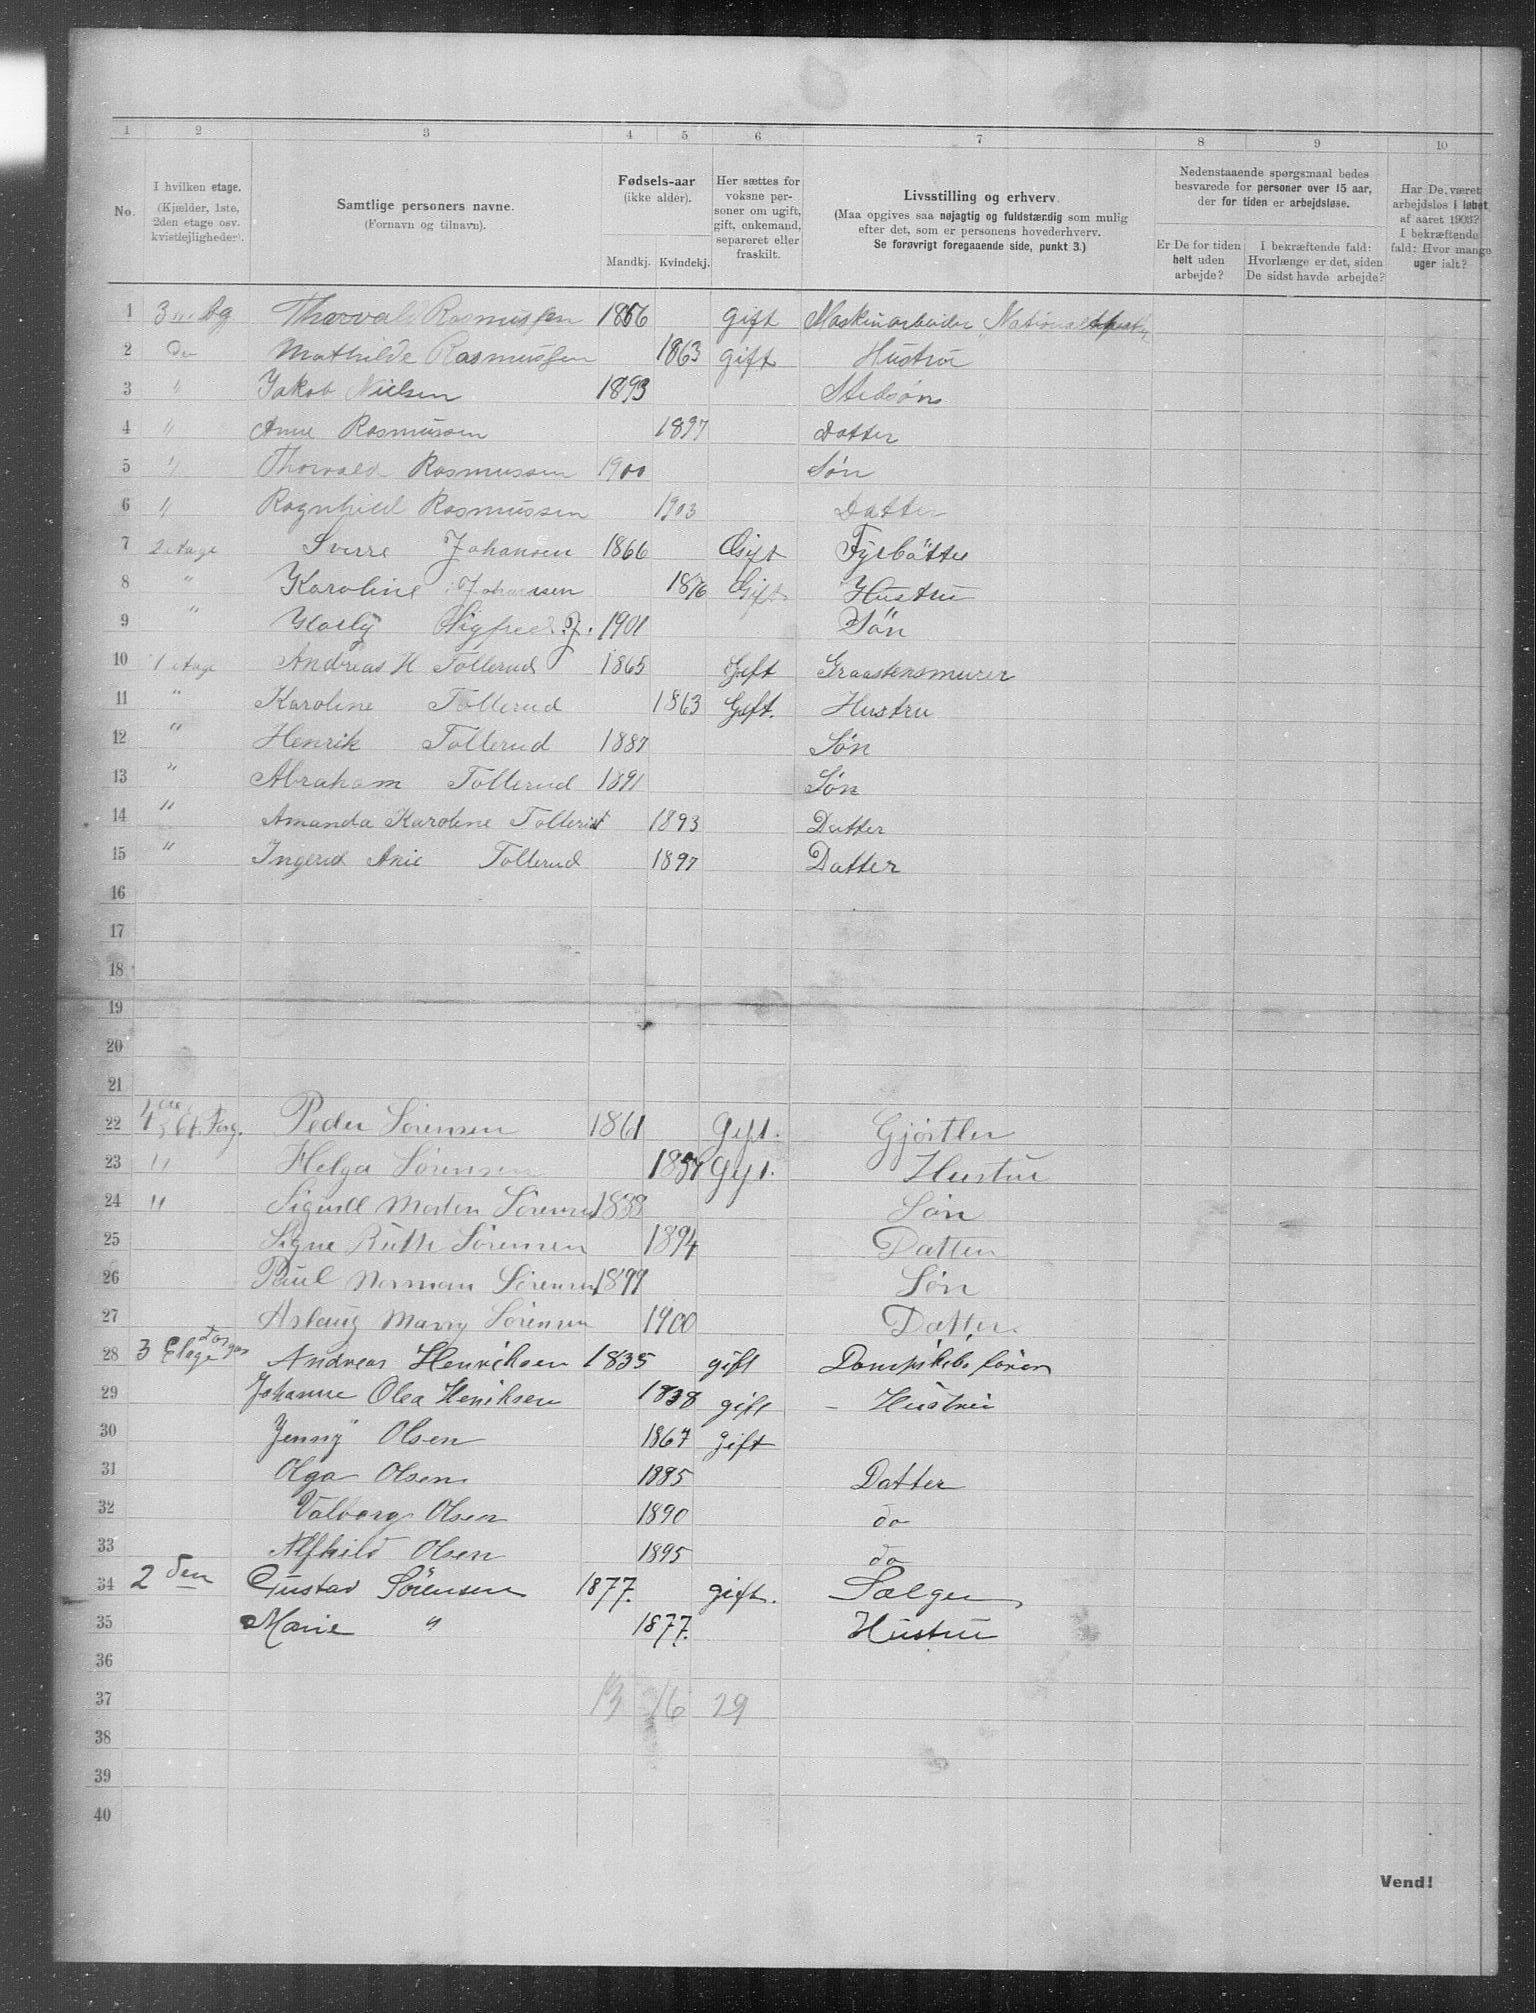 1 2 3 4 5 6 7 8 9 10
No.
I hvilken etage.
(Kjælder, 1ste,
2den etage osv.
kvistlejligheder).
Samtlige personers navne.
(Fornavn og tilnavn).
Fødsels-aar
(ikke alder).
Mandkj. Kvindekj.
Her sættes for
voksne per-
soner om ugift,
gift, enkemand,
separeret eller
fraskilt.
Livsstilling og erhverv.
(Maa opgives saa nøjagtig og fuldstændig som mulig
efter det, som er personens hovederhverv.
Se forøvrigt foregaaende side, punkt 3.)
Nedenstaaende spørgsmaal bedes
besvarede for personer over 15 aar,
der for tiden er arbejdsløse.
Er De for tiden
helt uden
arbejde?
I bekræftende fald:
Hvorlænge er det, siden
De sidst havde arbejde?
Har De været
arbejdsløs i løbet
af aaret 1903?
I bekræftende
fald: Hvor mange
uger ialt?
1 Thorvald Rasmussen 1866 gift Maskinarbeider
2 Mathilde Rasmussen 1863 gift Hustru
3 " Jakob Nielsen 1893 Stedsøn
4 " Anne Rasmussen 1897 Datter
5 " Thorvald Rasmussen 1900 Søn
6 " Ragnhild Rasmussen 1903 Datter
7 2 etage Sverre Johansen 1866 Gift Fyrbøtter
8 " Karoline Johansen 1876 Gift Hustru
9 " Sigfred J. 1901 Søn
10 1 etage Andreas H Tollerud 1865 Gift Graastensmurer
11 " Karoline Tollerud 1863 Gift. Hustru
12 " Henrik Tollerud 1887 Søn
13 " Abraham Tollerud 1891 Søn
14 " Amanda Karoline Tollerud 1893 Datter
15 " Ingerid Anie Tollerud 1897 Datter
16
17
18
19
20
21
22 Peder Sørensen 1861 Gift. Gjørtler
23 " Helga Sørensen 1857 Gift. Hustru
24 " Sigurd Morten Sørensen 1888 Søn
25 Signe Ruth Sørensen 1894 Datter
26 Paul Norman Sørensen 1899 Søn
27 Aslaug Marry Sørensen 1900 Datter.
28 3 Etage Andreas Henriksen 1835 gift Dampskibsfører
29 Johanne Olea Henriksen 1838 gift - Hustru
30 Jenny Olsen 1867 gift
31 Olga Olsen 1885 Datter
32 Valborg Olsen 1890 do
33 Alfhild Olsen 1895 do
34 2 den Gustav Sörensen 1877. gift. Sælger
35 Marie " 1877. Hustru
36
37 13 16 29
38
39
40
Vend!